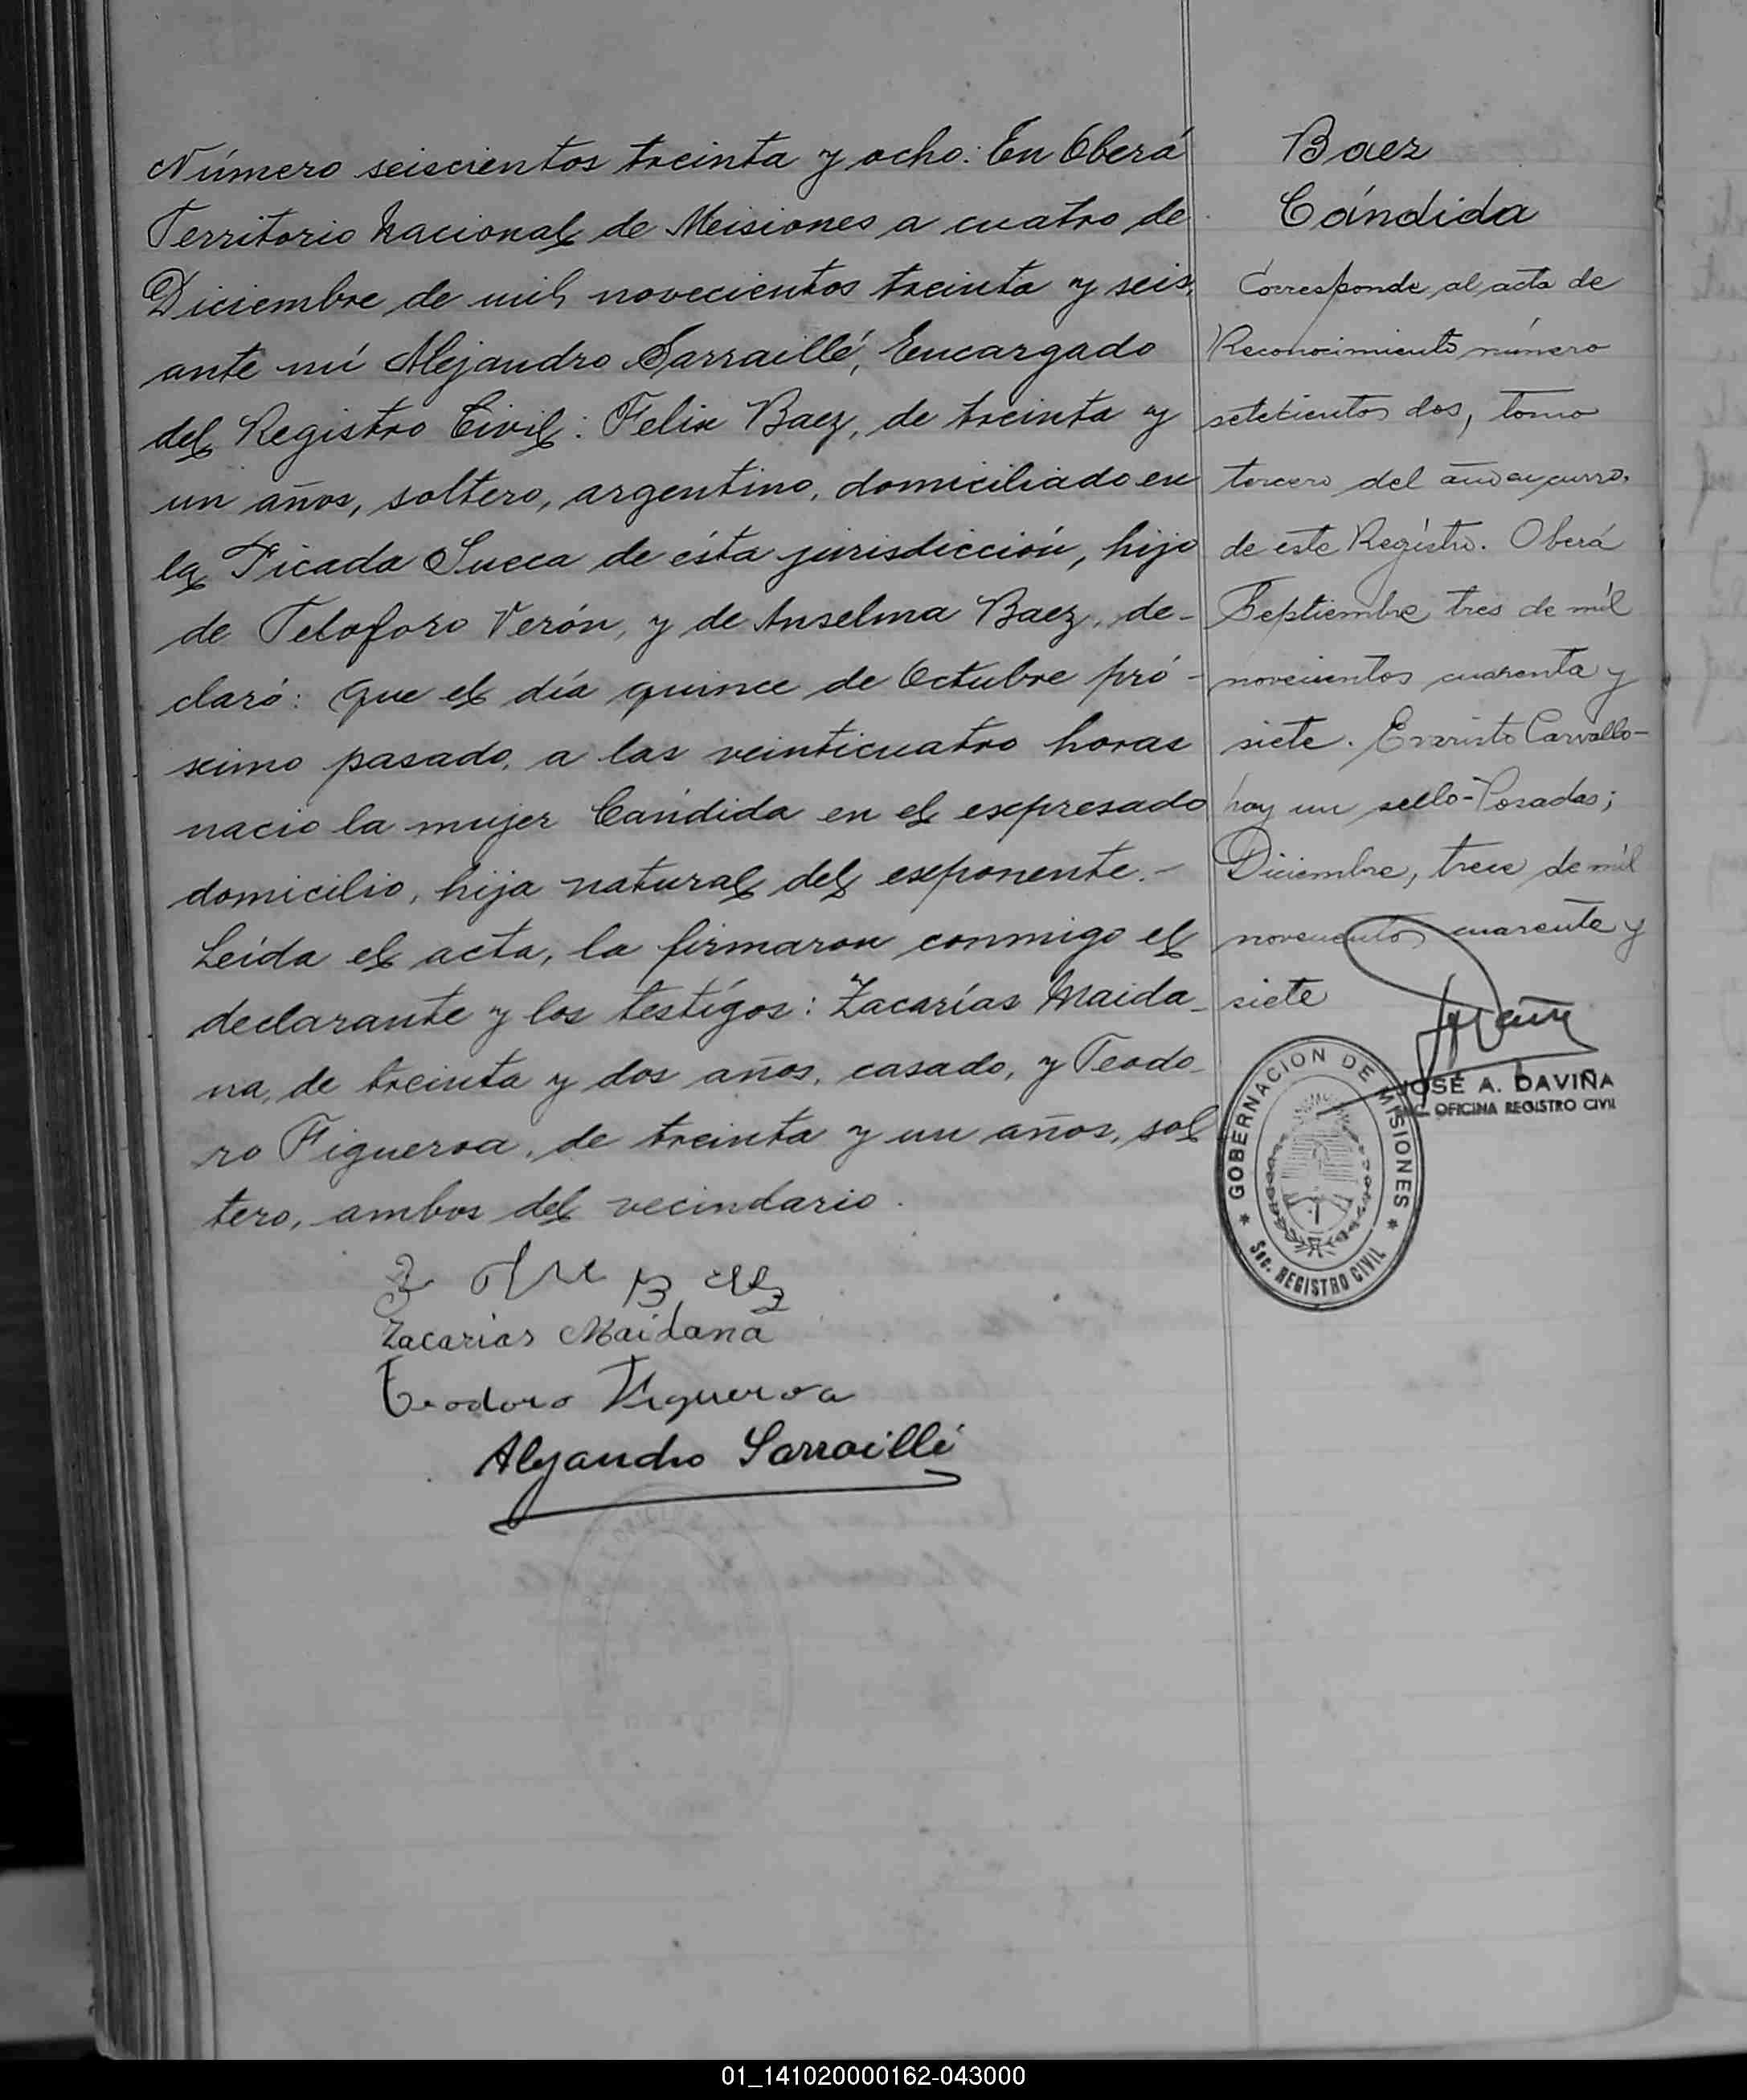 Número seiscientos treinta y ocho: En Oberá
Territorio Nacional de Misiones a cuatro de
Diciembre de mil novecientos treinta y seis,
ante mí Alejandro Sarraillé, Encargado
del Registro Civil: Felix Baez, de treinta y
un años, soltero, argentino, domiciliado en
la Picada Sueca de ésta jurisdicción, hijo
de Teloforo Verón, y de Anselma Baez, de-
claró: Que el día quince de Octubre pró-
ximo pasado, a las veinticuatro horas
nacio la mujer Cándida en el expresado
domicilio, hija natural del exponente.-
Leída el acta, la firmaron conmigo el
declarante y los testigos: Zacarías Maida-
na, de treinta y dos años, casado, y Teodo-
ro Figueroa, de treinta y un años, sol
tero, ambos del vecindario.
Baez
Zacarias Maidana
Teodoro Figueroa
Alejandro Sarraillé
Baez
Cándida
Corresponde al acta de
Reconocimiento número
setecientos dos, tomo
tercero del año en curso,
de este Registro. Oberá
Septiembre, tres de mil
novecientos cuarenta y
siete. Evaristo Carvallo-
hay un sello-Posadas;
Diciembre, trece de mil
novecientos cuarenta y
siete
JOSÉ A. DAVIÑA
ENC. OFICINA REGISTRO CIVIL
GOBERNACION DE MISIONES
Sec. REGISTRO CIVIL
01_141020000162-043000